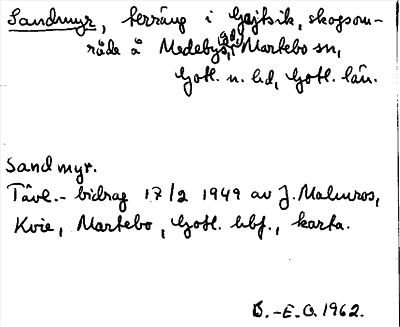 Sandmyr, terräng i Gajtsik, skogsom-
råde å Medebys gd, i Martebo sn,
Gotl. n. hd, Gotl. län.
Sandmyr.
Tävl.- bidrag 17/2 1949 av J. Malmros,
Kvie, Martebo, Gotl. hbf., karta.
B.-E.O. 1962.